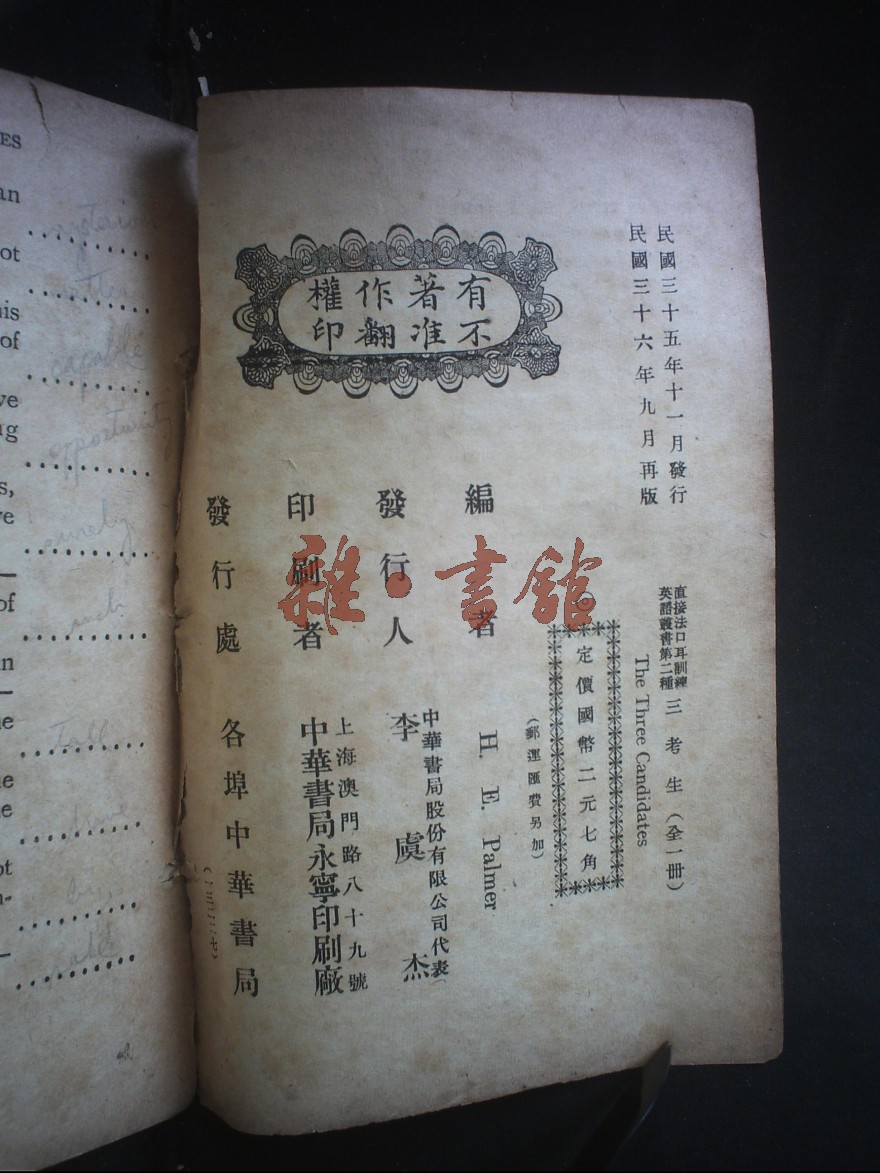 ES
an
ot
his
of
ve
ng
s,
ve
of
an
he
ue
e
ot
n-
capable
opportunity
surely
民國三十五年十一月發行
民國三十六年九月再版
有著作權
不准翻印
直接法口耳訓練
英語叢書第二種
三考生（全一冊）
The Three Candidates
◎定價國幣二元七角
（郵運匯費另加）
編者 H. E. Palmer
發行人 李虞杰
中華書局股份有限公司代表
印刷者
上海澳門路八十九號
中華書局永寧印刷廠
發行處 各埠中華書局
雜·書館